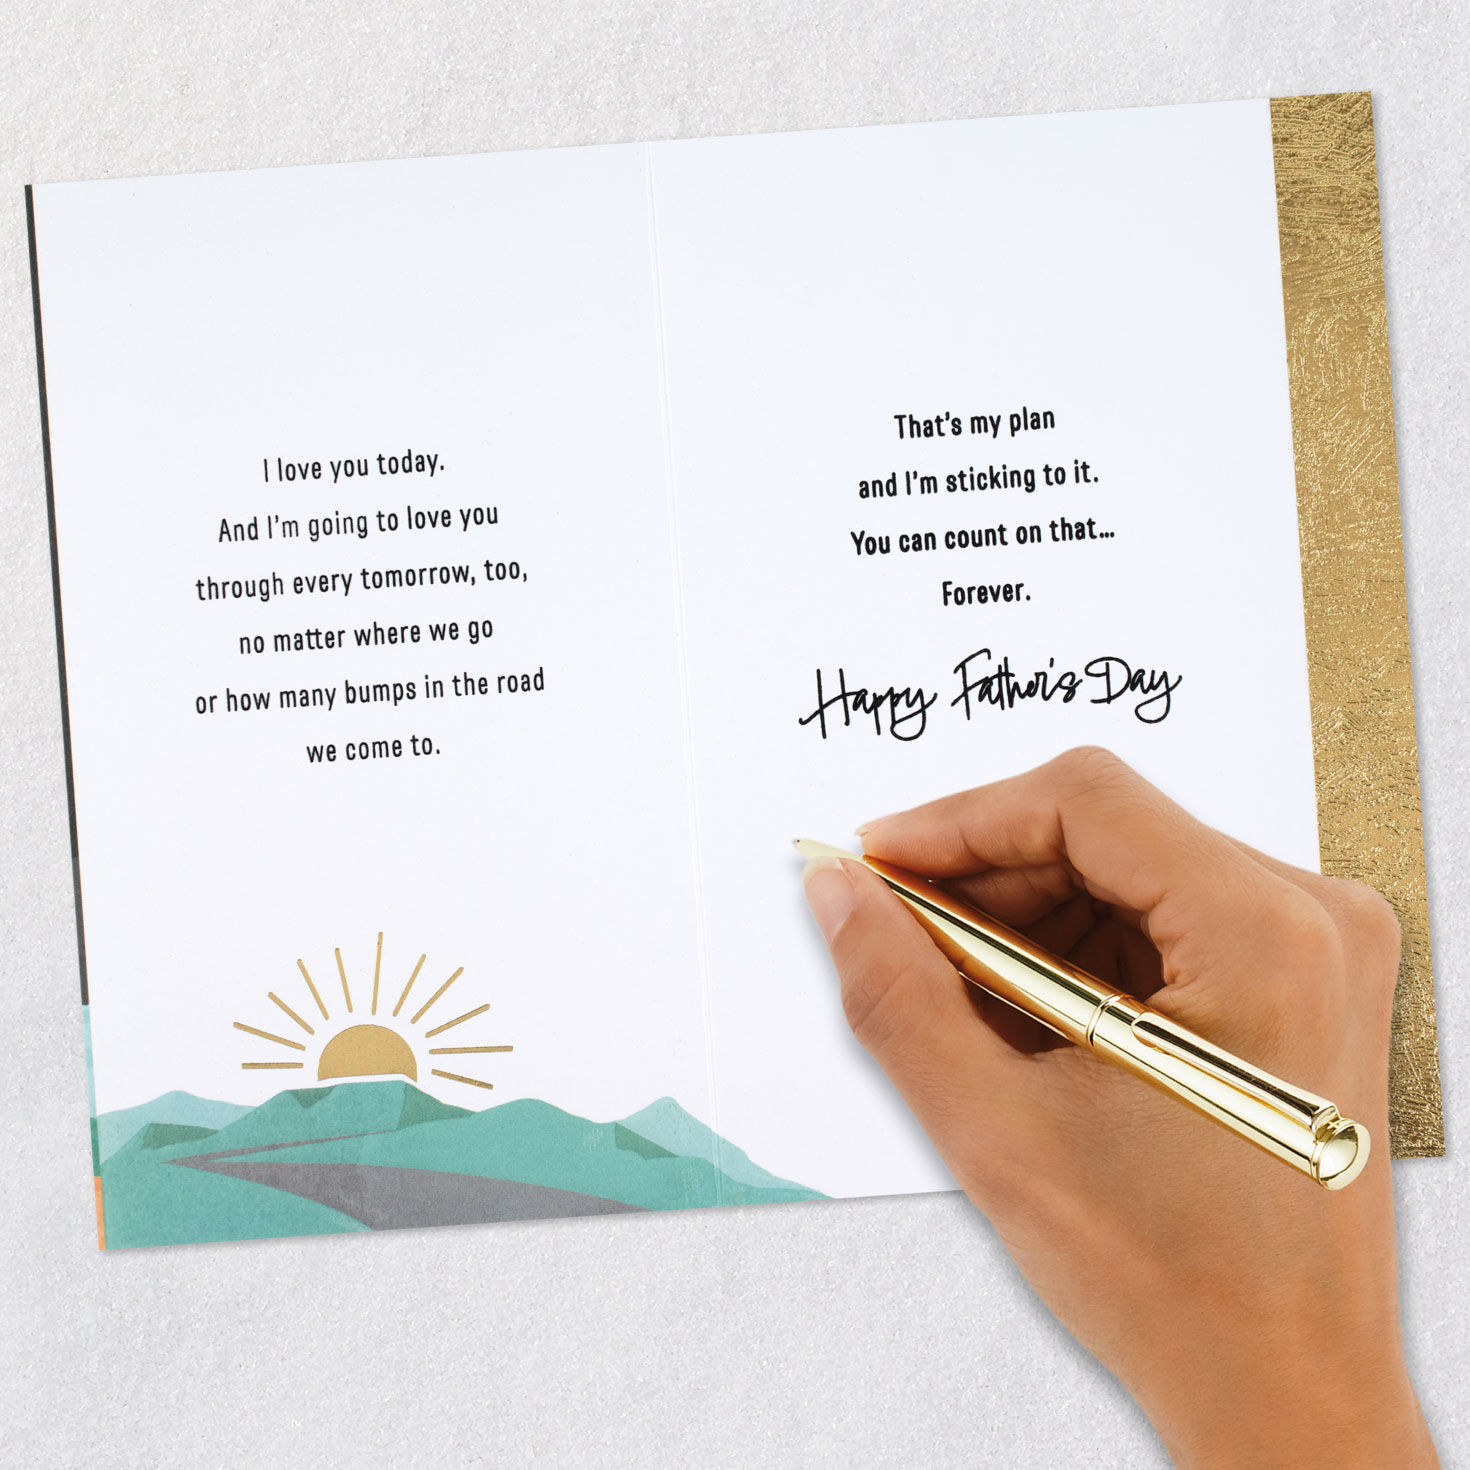 I love you today.
And I'm going to love you
through every tomorrow, too,
no matter where we go
or how many bumps in the road
we come to.
That's my plan
and I'm sticking to it.
You can count on that...
Forever.
Happy Father's Day